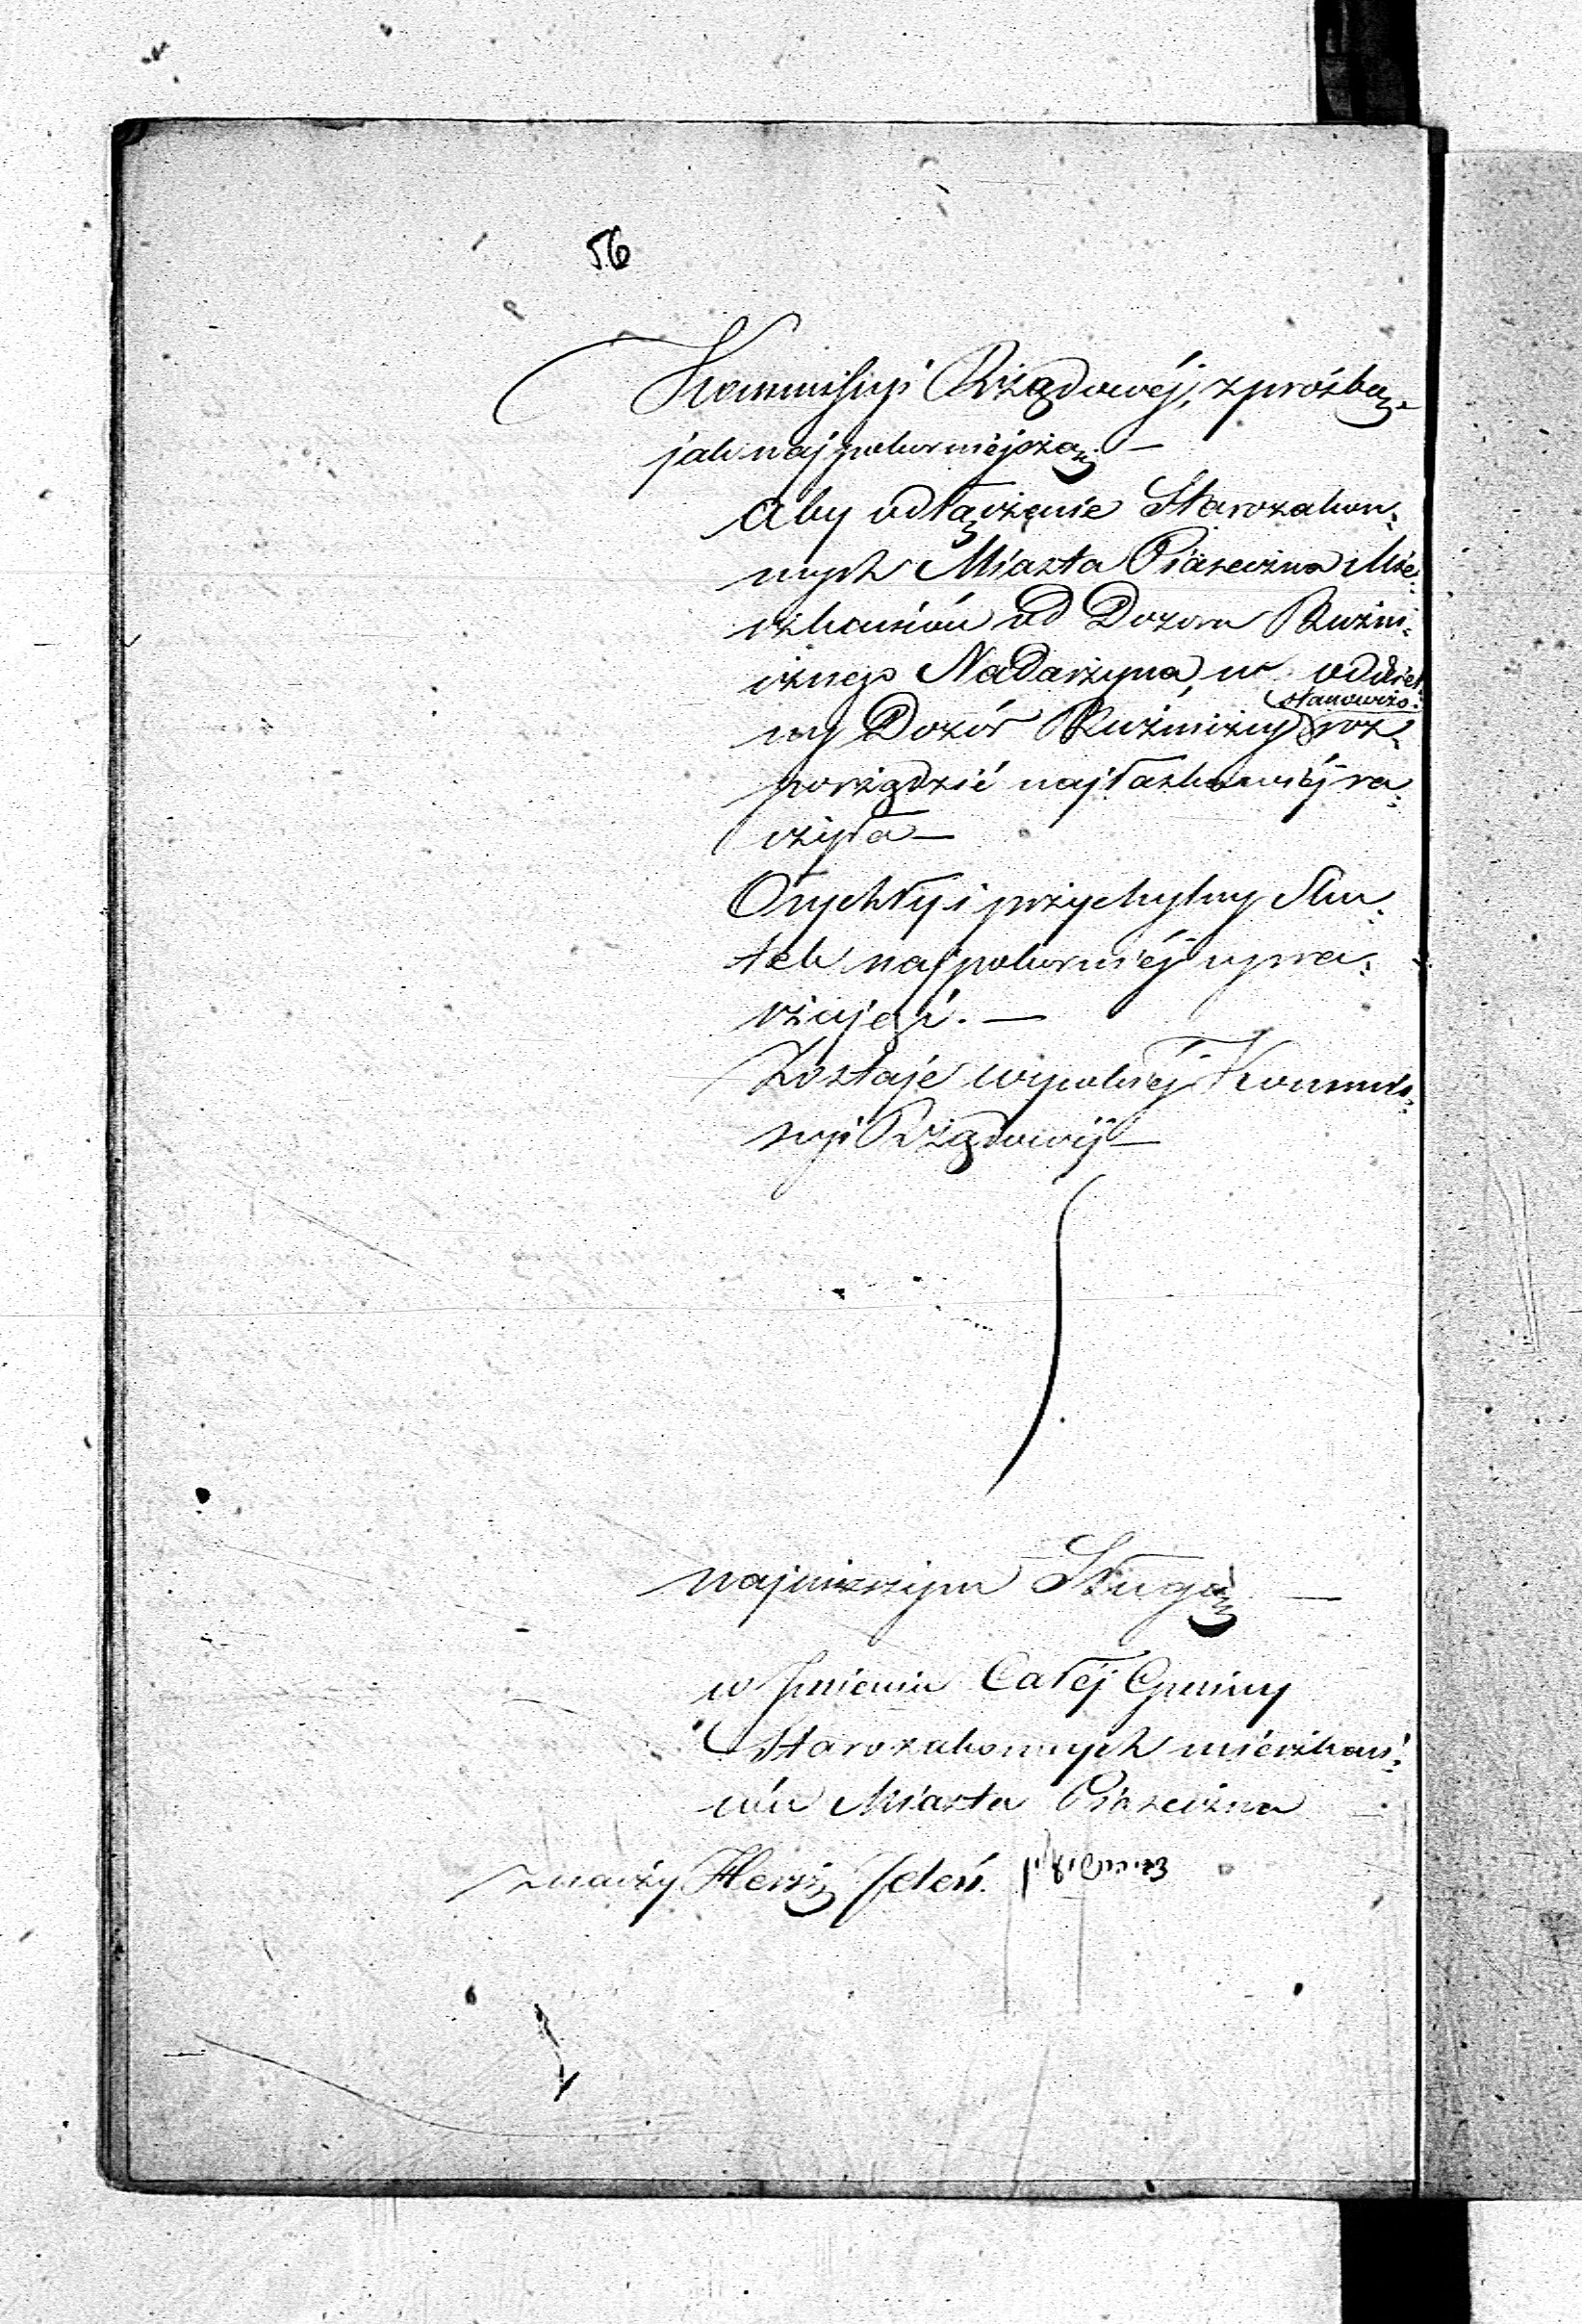 56
Kommissyi Rządowéj, z prośbą
jak naj pokorniejszą —
Aby odłączenie Starozakon-
nych Miasta Piaseczna Mie-
szkańców od Dozoru Buźni-
cznego Nadarzyna, w oddziel-
ny Dozór Buźniczny stanowczo roz-
porządzić najłaskawiéj ra-
czyła —
O rychły i przychylny Sku-
tek najpokorniéj upra-
szając. —
Zostaje Kommis-
syi Rządowéj —
najniższym Sługą —
w Jmieniu Całéj Gminy
Starozakonnych mieszkań-
ców Miasta Piaseczna
znaczy Hersz Jeleń.